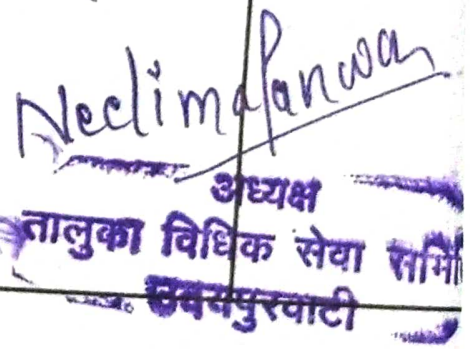 Neelima Panwar
अध्यक्ष
तालुका विधिक सेवा समि
उदयपुरवाटी